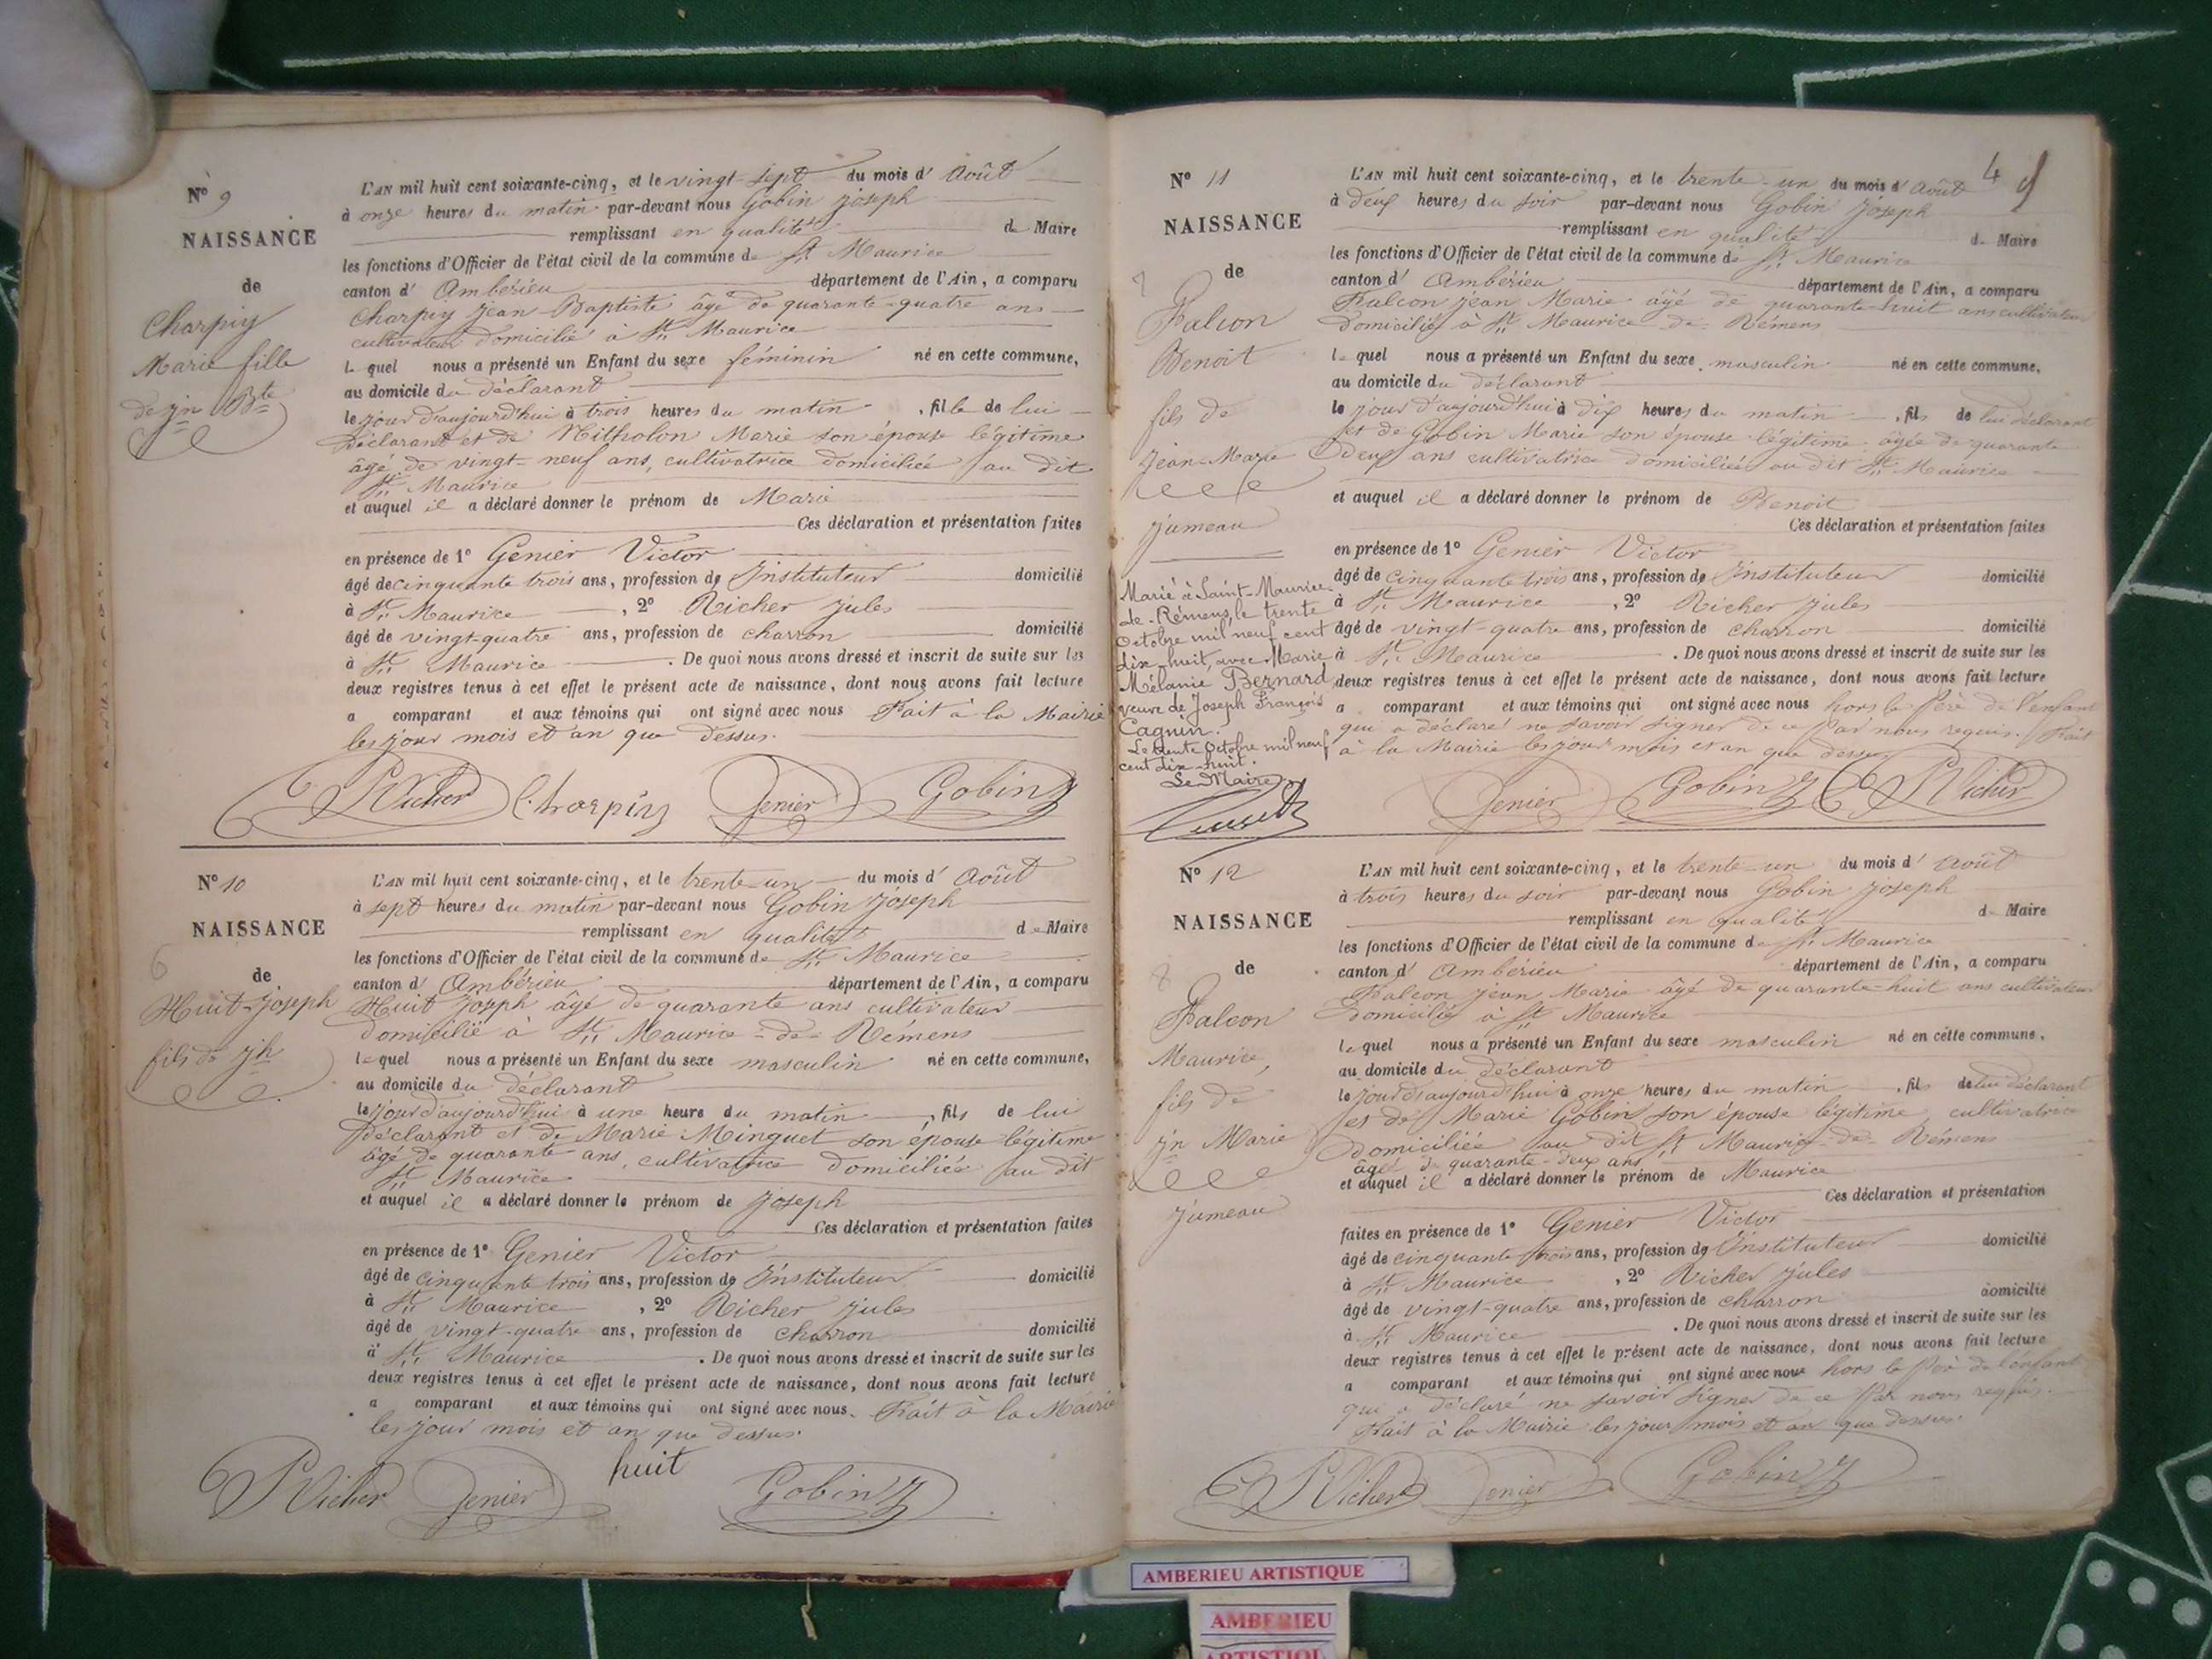 N° 9
NAISSANCE
de
Charpiy
Marie fille
de Jn Bte
L'AN mil huit cent soixante-cinq, et le vingt-sept du mois d' Août
à onze heures du matin par-devant nous Gobin Joseph
remplissant en qualité de Maire
les fonctions d'Officier de l'état civil de la commune de St Maurice
canton d' Ambérieu département de l'Ain, a comparu
Charpiy Jean Baptiste âgé de quarante-quatre ans
cultivateur domicilié à St Maurice
lequel nous a présenté un Enfant du sexe féminin né en cette commune,
au domicile du déclarant
le jour d'aujourd'hui à trois heures du matin, fille de lui
déclarant et de Marie son épouse légitime
âgé de vingt-neuf ans, cultivatrice domiciliée au dit
St Maurice
et auquel il a déclaré donner le prénom de Marie
Ces déclaration et présentation faites
en présence de 1° Genier Victor
âgé de cinquante trois ans, profession de Instituteur domicilié
à St Maurice, 2° Richer Jules
âgé de vingt-quatre ans, profession de charron domicilié
à St Maurice. De quoi nous avons dressé et inscrit de suite sur les
deux registres tenus à cet effet le présent acte de naissance, dont nous avons fait lecture
a comparant et aux témoins qui ont signé avec nous Fait à la Mairie
les jour mois et an que dessus.
Richer Charpiy Genier Gobin J
N° 10
NAISSANCE
6
de
Huit Joseph
fils de Jh
L'AN mil huit cent soixante-cinq, et le trente-un du mois d' Août
à sept heures du matin par-devant nous Gobin Joseph
remplissant en qualité de Maire
les fonctions d'Officier de l'état civil de la commune de St Maurice
canton d' Ambérieu département de l'Ain, a comparu
Huit Joseph âgé de quarante ans cultivateur
domicilié à St Maurice-de-Rémens
lequel nous a présenté un Enfant du sexe masculin né en cette commune,
au domicile du déclarant
le jour d'aujourd'hui à une heure du matin, fils de lui
déclarant et de Marie Minguet son épouse légitime
âgé de quarante ans, cultivatrice domiciliée au dit
St Maurice
et auquel il a déclaré donner le prénom de Joseph
Ces déclaration et présentation faites
en présence de 1° Genier Victor
âgé de cinquante trois ans, profession de Instituteur domicilié
à St Maurice, 2° Richer Jules
âgé de vingt-quatre ans, profession de charron domicilié
à St Maurice. De quoi nous avons dressé et inscrit de suite sur les
deux registres tenus à cet effet le présent acte de naissance, dont nous avons fait lecture
a comparant et aux témoins qui ont signé avec nous. Fait à la Mairie
les jour mois et an que dessus.
Richer Genier huit Gobin J
4
N° 11
NAISSANCE
de
Falcon
Benoit
fils de
Jean-Marie
Jumeau
Marié à Saint-Maurice
de-Rémens, le trente
Octobre mil neuf cent
dix-huit, avec Marie
Mélanie Bernard
veuve de Joseph François
Cagnin.
Le trente Octobre mil neuf
cent dix-huit.
Le Maire
L'AN mil huit cent soixante-cinq, et le trente-un du mois d' Août
à deux heures du soir par-devant nous Gobin Joseph
remplissant en qualité de Maire
les fonctions d'Officier de l'état civil de la commune de St Maurice
canton d' Ambérieu département de l'Ain, a comparu
Falcon Jean Marie âgé de quarante-huit ans cultivateur
domicilié à St Maurice-de-Rémens
lequel nous a présenté un Enfant du sexe masculin né en cette commune,
au domicile du déclarant
le jour d'aujourd'hui à dix heures du matin, fils de lui déclarant
et de Gobin Marie son épouse légitime âgée de quarante
deux ans cultivatrice domiciliée au dit St Maurice
et auquel il a déclaré donner le prénom de Benoit
Ces déclaration et présentation faites
en présence de 1° Genier Victor
âgé de cinquante trois ans, profession de Instituteur domicilié
à St Maurice, 2° Richer Jules
âgé de vingt-quatre ans, profession de charron domicilié
à St Maurice. De quoi nous avons dressé et inscrit de suite sur les
deux registres tenus à cet effet le présent acte de naissance, dont nous avons fait lecture
a comparant et aux témoins qui ont signé avec nous hors le Père de l'enfant
qui a déclaré ne savoir signer de ce par nous requis. Fait
à la Mairie les jour mois et an que dessus
Genier Gobin J Richer
N° 12
NAISSANCE
de
8
Falcon
Maurice,
fils de
Jn Marie
Jumeau
L'AN mil huit cent soixante-cinq, et le trente-un du mois d' Août
à trois heures du soir par-devant nous Gobin Joseph
remplissant en qualité de Maire
les fonctions d'Officier de l'état civil de la commune de St Maurice
canton d' Ambérieu département de l'Ain, a comparu
Falcon Jean Marie âgé de quarante-huit ans cultivateur
domicilié à St Maurice
lequel nous a présenté un Enfant du sexe masculin né en cette commune,
au domicile du déclarant
le jour d'aujourd'hui à onze heures du matin, fils de lui déclarant
et de Marie Gobin son épouse légitime, cultivatrice
domiciliée au dit St Maurice-de-Rémens
âgée de quarante-deux ans
et auquel il a déclaré donner le prénom de Maurice
Ces déclaration et présentation
faites en présence de 1° Genier Victor
âgé de cinquante trois ans, profession de Instituteur domicilié
à St Maurice, 2° Richer Jules
âgé de vingt-quatre ans, profession de charron domicilié
à St Maurice. De quoi nous avons dressé et inscrit de suite sur les
deux registres tenus à cet effet le présent acte de naissance, dont nous avons fait lecture
a comparant et aux témoins qui ont signé avec nous hors le Père de l'enfant
qui a déclaré ne savoir signer de ce par nous requis.
Fait à la Mairie les jour mois et an que dessus.
Richer Genier Gobin J
AMBERIEU ARTISTIQUE
AMBERIEU
ARTISTIQU